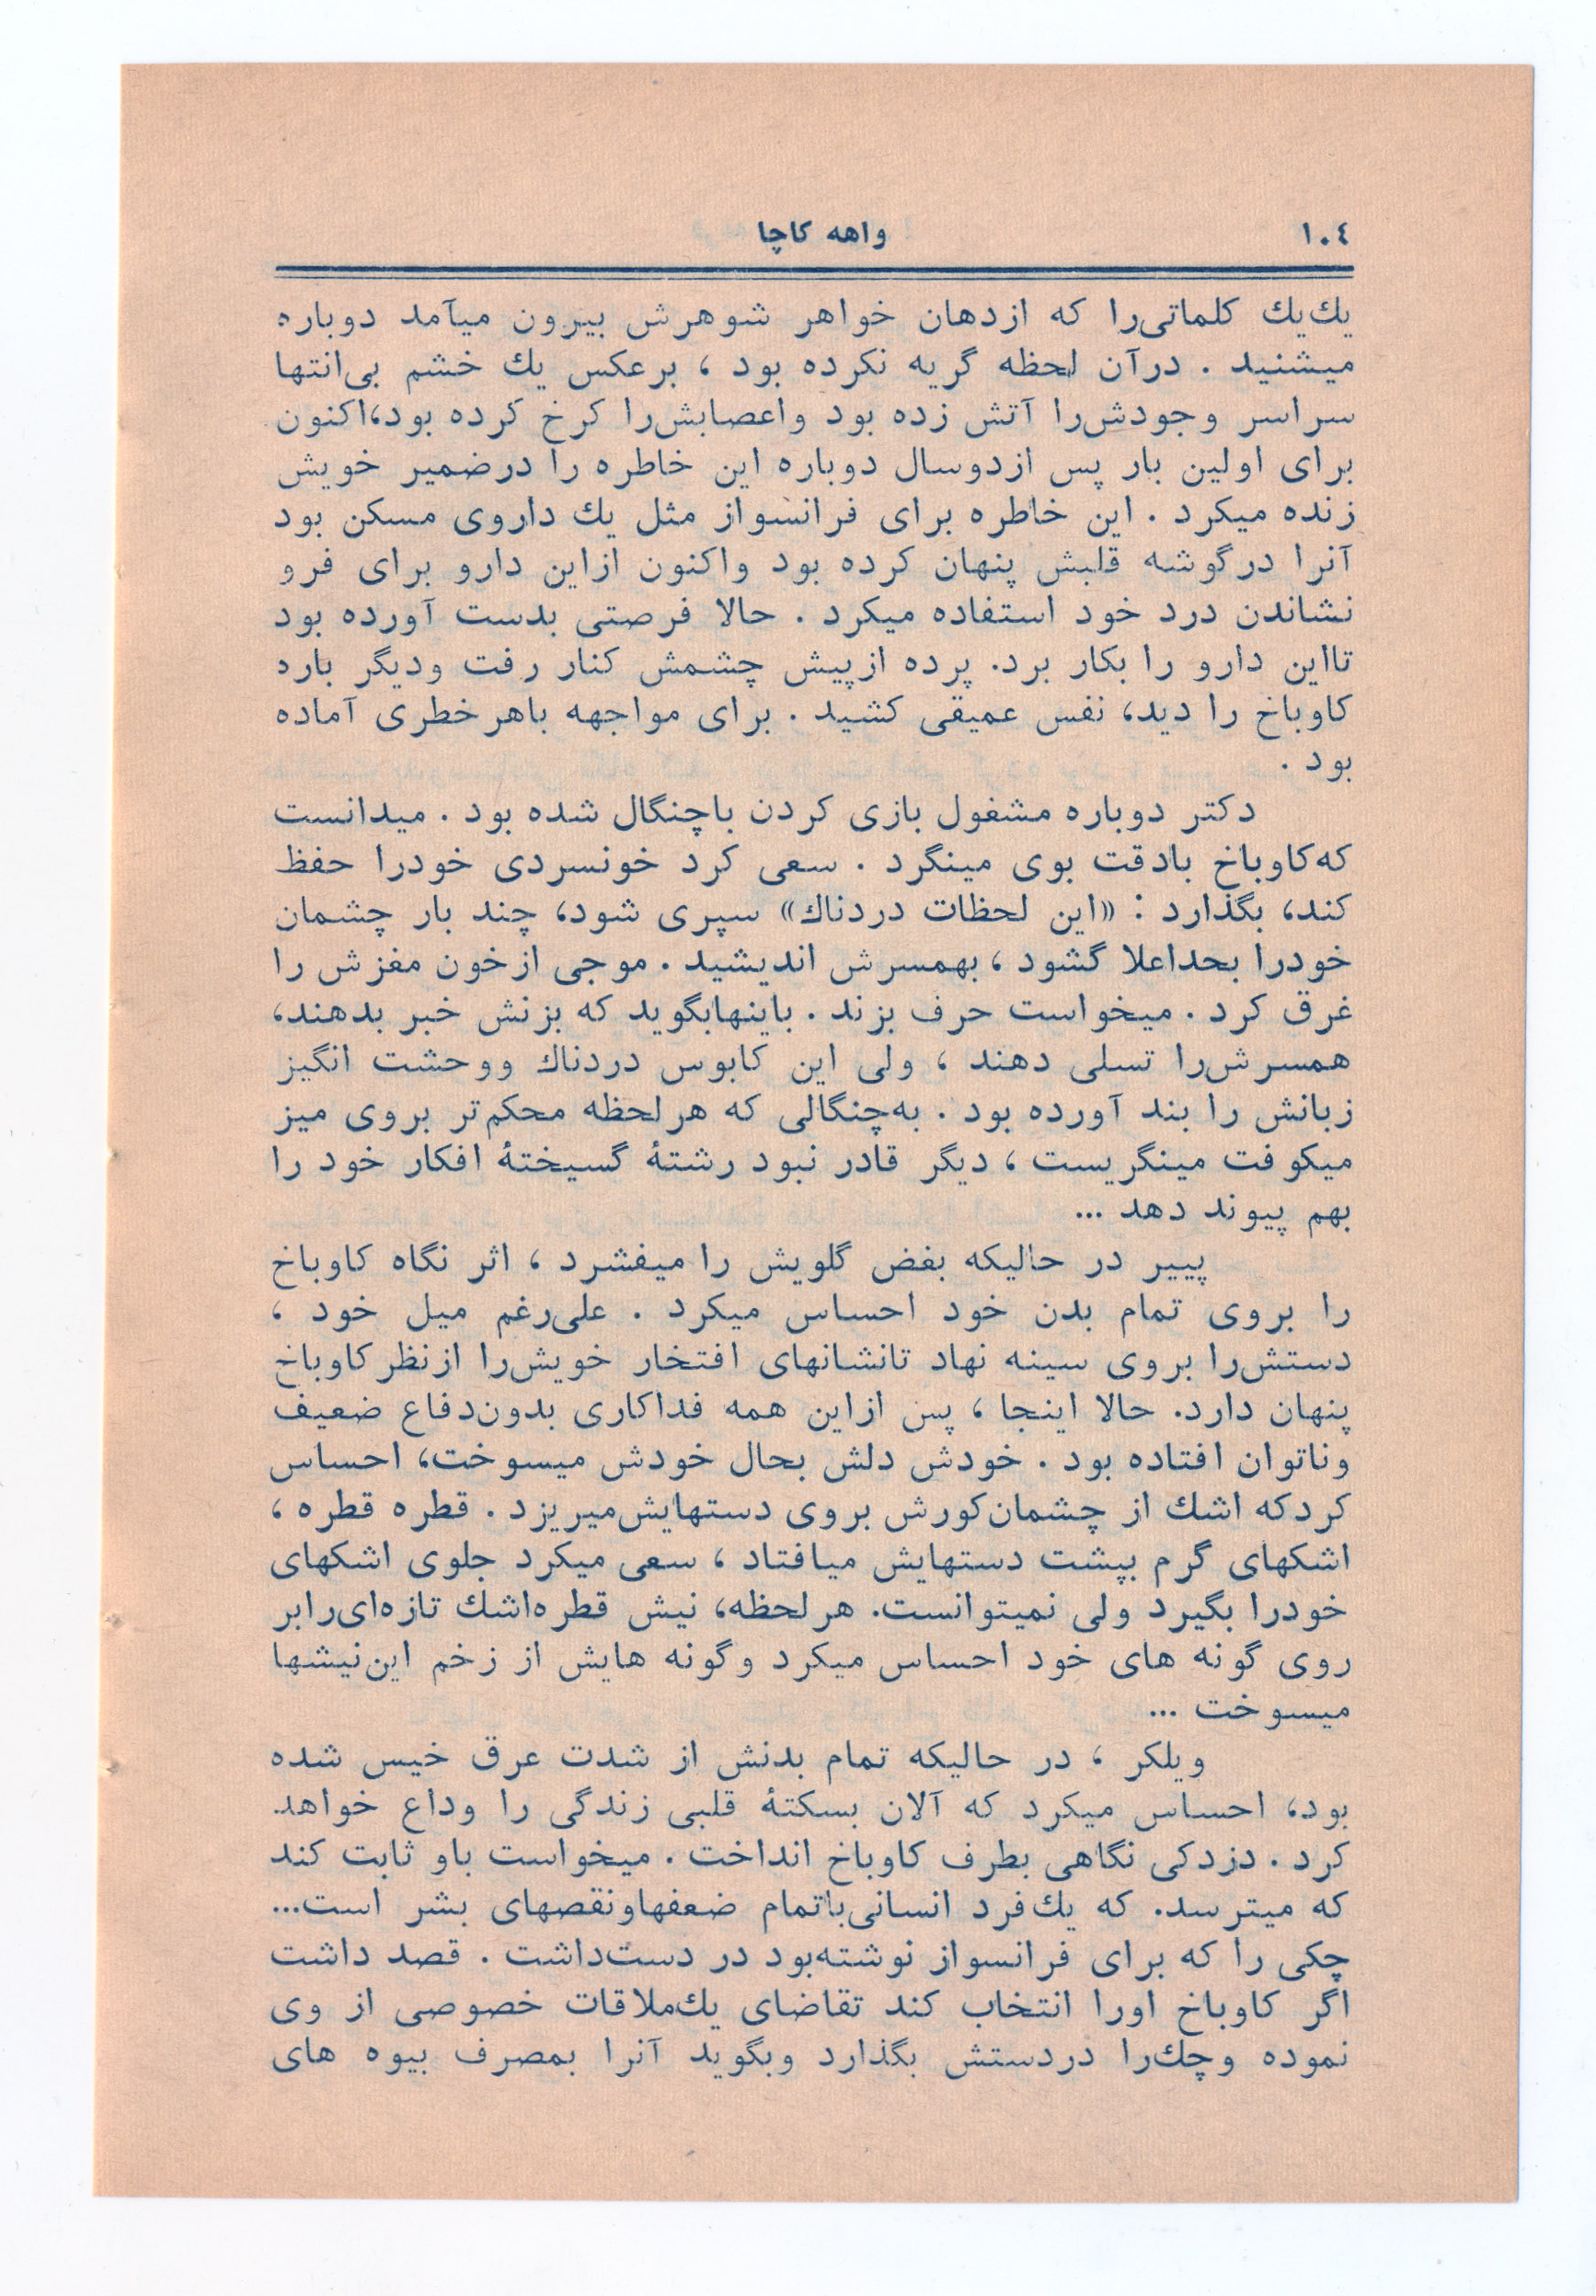 ١٠٤
واهه کاچا
یك‌یك کلماتی‌را که ازدهان خواهر شوهرش بیرون میآمد دوباره
میشنید . درآن لحظه گریه نکرده بود ، برعکس یك خشم بی‌انتها
سراسر وجودش‌را آتش زده بود واعصابش‌را کرخ کرده بود،اکنون
برای اولین بار پس ازدوسال دوباره این خاطره را درضمیر خویش
زنده میکرد . این خاطره برای فرانسواز مثل یك داروی مسکن بود
آنرا درگوشه قلبش پنهان کرده بود واکنون ازاین دارو برای فرو
نشاندن درد خود استفاده میکرد . حالا فرصتی بدست آورده بود
تااین دارو را بکار برد. پرده ازپیش چشمش کنار رفت ودیگر باره
کاوباخ را دید، نفس عمیقی کشید . برای مواجهه باهرخطری آماده
بود .
دکتر دوباره مشغول بازی کردن باچنگال شده بود . میدانست
که‌کاوباخ بادقت بوی مینگرد . سعی کرد خونسردی خودرا حفظ
کند، بگذارد : «این لحظات دردناك» سپری شود، چند بار چشمان
خودرا بحداعلا گشود ، بهمسرش اندیشید . موجی ازخون مغزش را
غرق کرد . میخواست حرف بزند . باینهابگوید که بزنش خبر بدهند،
همسرش‌را تسلی دهند ، ولی این کابوس دردناك ووحشت انگیز
زبانش را بند آورده بود . به‌چنگالی که هرلحظه محکم‌تر بروی میز
میکوفت مینگریست ، دیگر قادر نبود رشتهٔ گسیختهٔ افکار خود را
بهم پیوند دهد ...
پییر در حالیکه بغض گلویش را میفشرد ، اثر نگاه کاوباخ
را بروی تمام بدن خود احساس میکرد . علی‌رغم میل خود ،
دستش‌را بروی سینه نهاد تانشانهای افتخار خویش‌را ازنظرکاوباخ
پنهان دارد. حالا اینجا ، پس ازاین همه فداکاری بدون‌دفاع ضعیف
وناتوان افتاده بود . خودش دلش بحال خودش میسوخت، احساس
کردکه اشك از چشمان‌کورش بروی دستهایش‌میریزد . قطره قطره ،
اشکهای گرم بپشت دستهایش میافتاد ، سعی میکرد جلوی اشکهای
خودرا بگیرد ولی نمیتوانست. هرلحظه، نیش قطره‌اشك تازه‌ای‌رابر
روی گونه های خود احساس میکرد وگونه هایش از زخم این‌نیشها
میسوخت ...
ویلکر ، در حالیکه تمام بدنش از شدت عرق خیس شده
بود، احساس میکرد که آلان بسکتهٔ قلبی زندگی را وداع خواهد
کرد . دزدکی نگاهی بطرف کاوباخ انداخت . میخواست باو ثابت کند
که میترسد. که یك‌فرد انسانی‌باتمام ضعفهاونقصهای بشر است...
چکی را که برای فرانسواز نوشته‌بود در دست‌داشت . قصد داشت
اگر کاوباخ اورا انتخاب کند تقاضای یك‌ملاقات خصوصی از وی
نموده وچك‌را دردستش بگذارد وبگوید آنرا بمصرف بیوه های